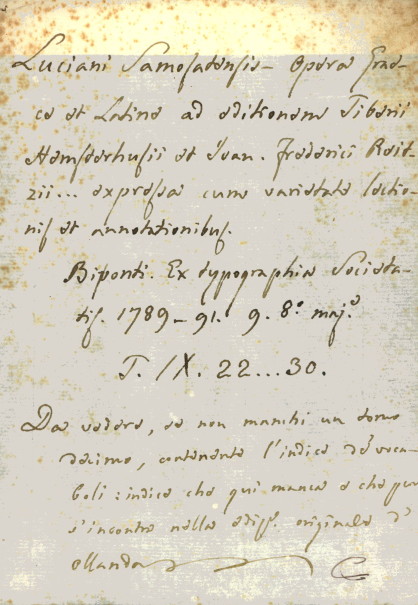 Luciani Samosatensis – Opera Grae-
ca et Latina ad editionem Tiberii
Hemsterhusii et Joan. Frederici Reit-
zii... expressa cum varietate lectio-
nis et annotationibus.
Biponti. Ex typographia Societa-
tis. 1789–91. 9. 8.º maj.º
T. IX. 22...30.
Da vedere, se non manchi un tomo
decimo, contenente l'indice de' voca-
boli: indice che qui manca e che pur
s'incontra nella ediz. originale d'
ollanda